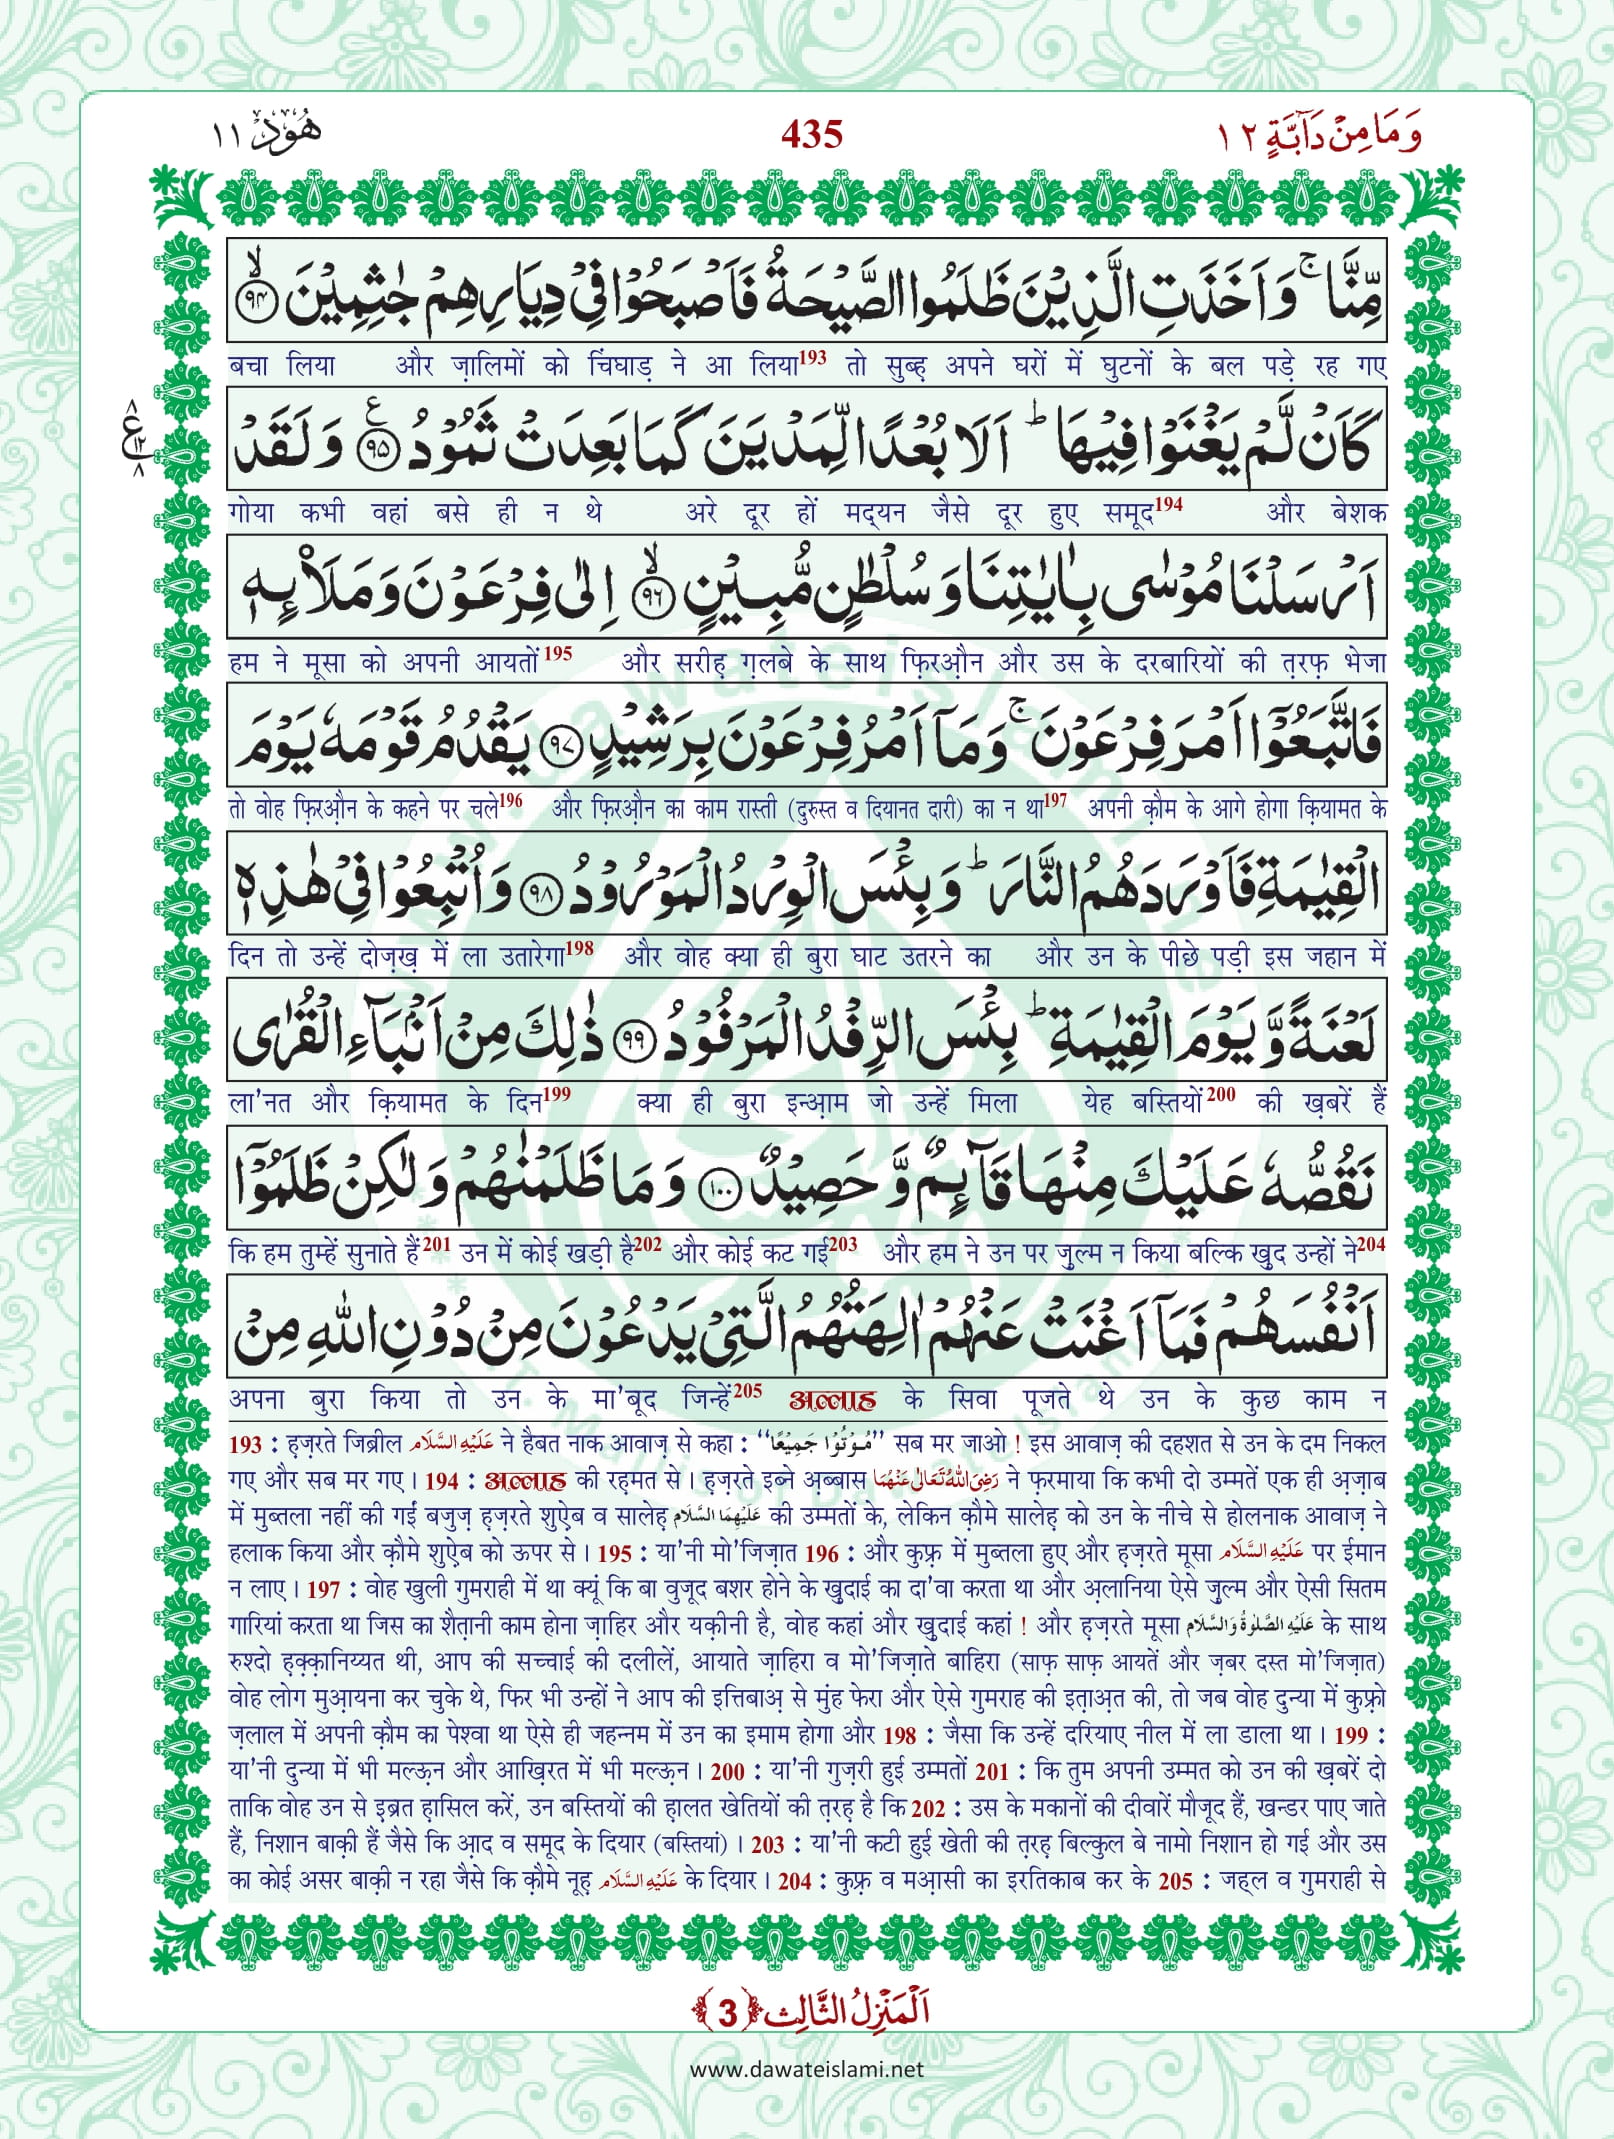 وَمَا مِنْ دَآبَّةٍ ١٢
435
هُوْد ١١
مِّنَّا ۚ وَاَخَذَتِ الَّذِيْنَ ظَلَمُوا الصَّيْحَةُ فَاَصْبَحُوْا فِيْ دِيَارِهِمْ جٰثِمِيْنَ ۙ‏﴿۹۴﴾
बचा लिया और ज़ालिमों को चिंघाड़ ने आ लिया193 तो सुब्ह़ अपने घरों में घुटनों के बल पड़े रह गए
كَاَنْ لَّمْ يَغْنَوْا فِيْهَا ؕ اَلَا بُعْدًا لِّمَدْيَنَ كَمَا بَعِدَتْ ثَمُوْدُ ﴿۹۵﴾ؑ وَلَقَدْ
गोया कभी वहां बसे ही न थे अरे दूर हों मद्यन जैसे दूर हुए समूद194 और बेशक
اَرْسَلْنَا مُوْسٰى بِاٰيٰتِنَا وَسُلْطٰنٍ مُّبِيْنٍ ۙ﴿۹۶﴾ اِلٰى فِرْعَوْنَ وَمَلَا۟ئِهٖ
हम ने मूसा को अपनी आयतों195 और सरीह़ ग़लबे के साथ फ़िरऔ़न और उस के दरबारियों की त़रफ़ भेजा
فَاتَّبَعُوْۤا اَمْرَ فِرْعَوْنَ ۚ وَمَاۤ اَمْرُ فِرْعَوْنَ بِرَشِيْدٍ ﴿۹۷﴾ يَقْدُمُ قَوْمَهٗ يَوْمَ
तो वोह फ़िरऔ़न के कहने पर चले196 और फ़िरऔ़न का काम रास्ती (दुरुस्त व दियानत दारी) का न था197 अपनी क़ौम के आगे होगा क़ियामत के
الْقِيٰمَةِ فَاَوْرَدَهُمُ النَّارَ ؕ وَبِئْسَ الْوِرْدُ الْمَوْرُوْدُ ﴿۹۸﴾ وَاُتْبِعُوْا فِيْ هٰذِهٖ
दिन तो उन्हें दोज़ख़ में ला उतारेगा198 और वोह क्या ही बुरा घाट उतरने का और उन के पीछे पड़ी इस जहान में
لَعْنَةً وَّيَوْمَ الْقِيٰمَةِ ؕ بِئْسَ الرِّفْدُ الْمَرْفُوْدُ ﴿۹۹﴾ ذٰلِكَ مِنْ اَنْۢبَآءِ الْقُرٰى
ला'नत और क़ियामत के दिन199 क्या ही बुरा इन्आ़म जो उन्हें मिला येह बस्तियों200 की ख़बरें हैं
نَقُصُّهٗ عَلَيْكَ مِنْهَا قَآئِمٌ وَّحَصِيْدٌ ﴿۱۰۰﴾ وَمَا ظَلَمْنٰهُمْ وَلٰكِنْ ظَلَمُوْۤا
कि हम तुम्हें सुनाते हैं201 उन में कोई खड़ी है202 और कोई कट गई203 और हम ने उन पर ज़ुल्म न किया बल्कि ख़ुद उन्हों ने204
اَنْفُسَهُمْ فَمَاۤ اَغْنَتْ عَنْهُمْ اٰلِهَتُهُمُ الَّتِيْ يَدْعُوْنَ مِنْ دُوْنِ اللّٰهِ مِنْ
अपना बुरा किया तो उन के मा'बूद जिन्हें205 अल्लाह के सिवा पूजते थे उन के कुछ काम न
193 : ह़ज़रते जिब्रील عَلَيْهِ السَّلَام ने हैबत नाक आवाज़ से कहा : “مُوْتُوْا جَمِيْعًا” सब मर जाओ ! इस आवाज़ की दहशत से उन के दम निकल
गए और सब मर गए। 194 : अल्लाह की रह़मत से। ह़ज़रते इब्ने अ़ब्बास رَضِىَ اللّٰهُ تَعَالٰى عَنْهُمَا ने फ़रमाया कि कभी दो उम्मतें एक ही अ़ज़ाब
में मुब्तला नहीं की गईं बजुज़ ह़ज़रते शुऐ़ब व सालेह़ عَلَيْهِمَا السَّلَام की उम्मतों के, लेकिन क़ौमे सालेह़ को उन के नीचे से होलनाक आवाज़ ने
हलाक किया और क़ौमे शुऐ़ब को ऊपर से। 195 : या'नी मो'जिज़ात 196 : और कुफ़्र में मुब्तला हुए और ह़ज़रते मूसा عَلَيْهِ السَّلَام पर ईमान
न लाए। 197 : वोह खुली गुमराही में था क्यूं कि बा वुजूद बशर होने के ख़ुदाई का दा'वा करता था और अ़लानिया ऐसे ज़ुल्म और ऐसी सितम
गारियां करता था जिस का शैत़ानी काम होना ज़ाहिर और यक़ीनी है, वोह कहां और ख़ुदाई कहां ! और ह़ज़रते मूसा عَلَيْهِ الصَّلٰوةُ وَالسَّلَام के साथ
रुश्दो ह़क़्क़ानिय्यत थी, आप की सच्चाई की दलीलें, आयाते ज़ाहिरा व मो'जिज़ाते बाहिरा (साफ़ साफ़ आयतें और ज़बर दस्त मो'जिज़ात)
वोह लोग मुआ़यना कर चुके थे, फिर भी उन्हों ने आप की इत्तिबाअ़ से मुंह फेरा और ऐसे गुमराह की इत़ाअ़त की, तो जब वोह दुन्या में कुफ़्रो
ज़लाल में अपनी क़ौम का पेश्वा था ऐसे ही जहन्नम में उन का इमाम होगा और 198 : जैसा कि उन्हें दरियाए नील में ला डाला था। 199 :
या'नी दुन्या में भी मल्ऊ़न और आख़िरत में भी मल्ऊ़न। 200 : या'नी गुज़री हुई उम्मतों 201 : कि तुम अपनी उम्मत को उन की ख़बरें दो
ताकि वोह उन से इ़ब्रत ह़ासिल करें, उन बस्तियों की ह़ालत खेतियों की त़रह़ है कि 202 : उस के मकानों की दीवारें मौजूद हैं, खन्डर पाए जाते
हैं, निशान बाक़ी हैं जैसे कि आ़द व समूद के दियार (बस्तियां)। 203 : या'नी कटी हुई खेती की त़रह़ बिल्कुल बे नामो निशान हो गई और उस
का कोई असर बाक़ी न रहा जैसे कि क़ौमे नूह़ عَلَيْهِ السَّلَام के दियार। 204 : कुफ़्र व मआ़सी का इरतिकाब कर के 205 : जह्ल व गुमराही से
اَلْمَنْزِلُ الثَّالِث ﴿3﴾
www.dawateislami.net